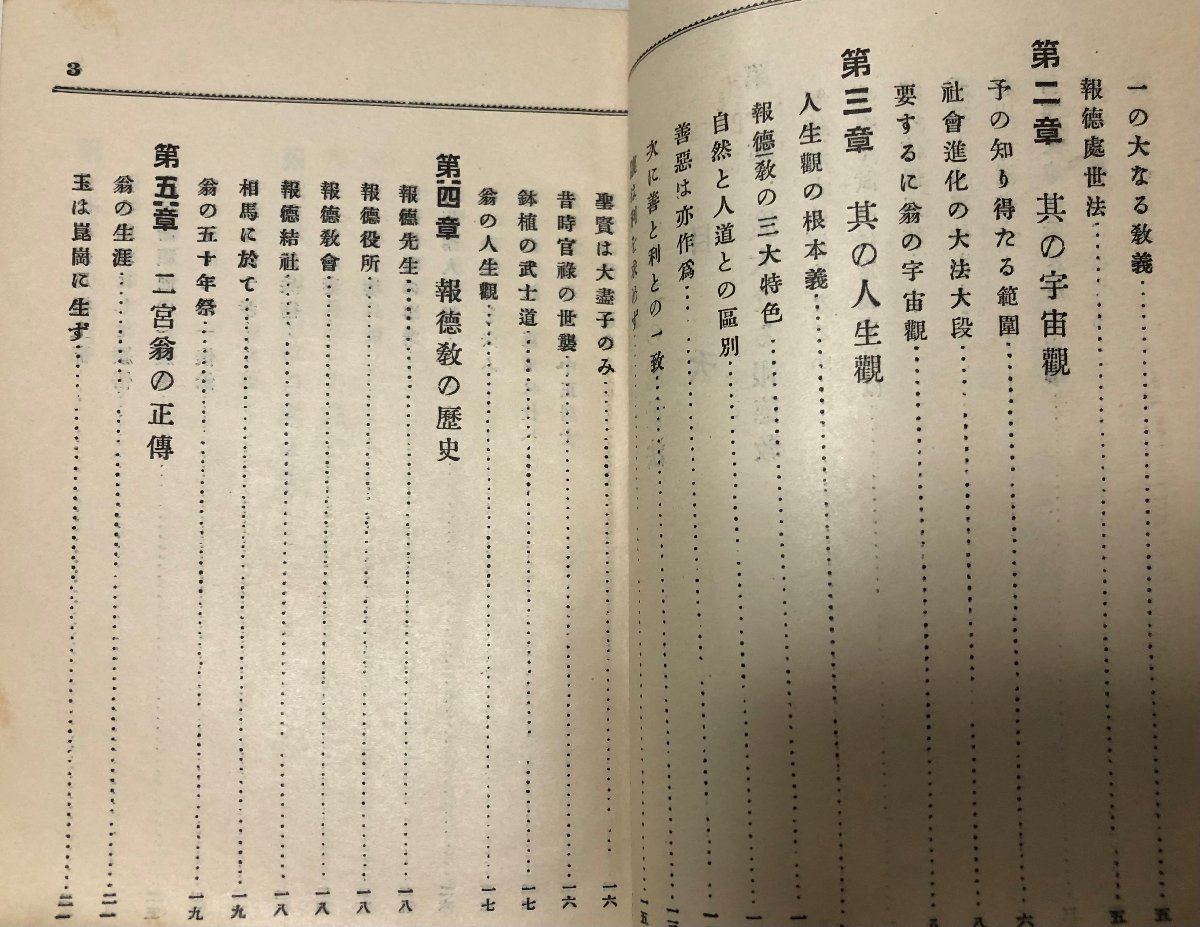 一の大なる敎義……五
報德處世法……五
第二章　其の宇宙觀
予の知り得たる範圍……六
社會進化の大法大段……八
要するに翁の宇宙觀……八
第三章　其の人生觀
人生觀の根本義……
報德敎の三大特色……
自然と人道との區別……
善惡は亦作爲……
次に善と利との一致……
3
聖賢は大盡子のみ……一六
昔時官祿の世襲……一六
鉢植の武士道……一七
翁の人生觀……一七
第四章　報德敎の歷史
報德先生……一八
報德役所……一八
報德敎會……一八
報德結社……一八
相馬に於て……一九
翁の五十年祭……一九
第五章　二宮翁の正傳
翁の生涯……二一
玉は崑崗に生ず……二一